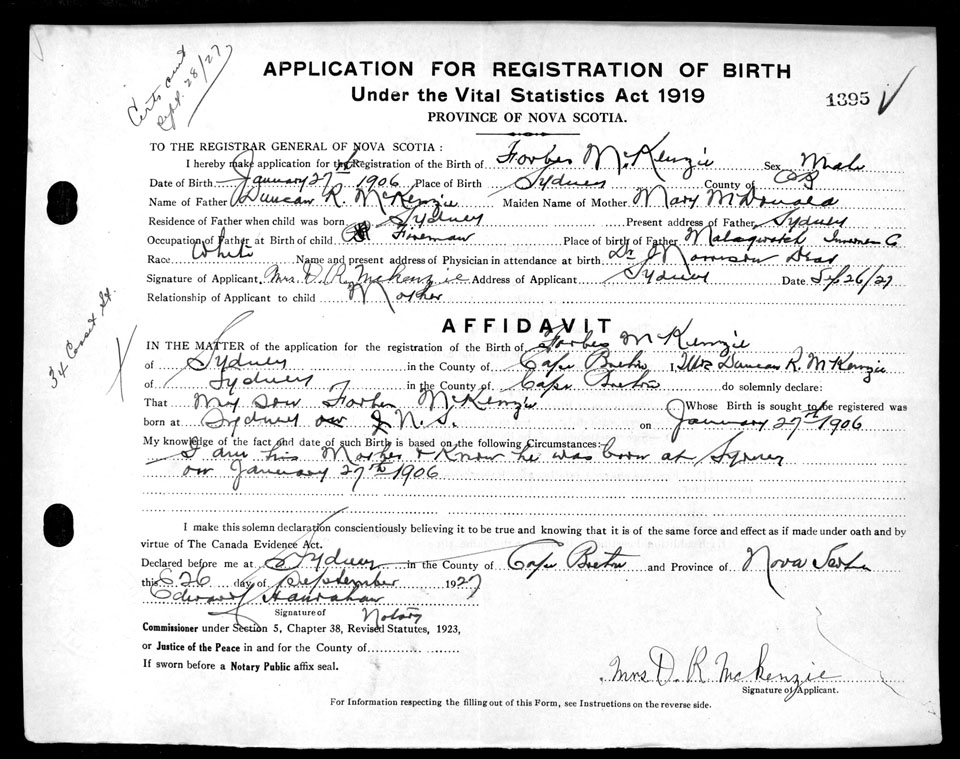 Certs out
Sept. 28/27
APPLICATION FOR REGISTRATION OF BIRTH
Under the Vital Statistics Act 1919
1395
PROVINCE OF NOVA SCOTIA.
TO THE REGISTRAR GENERAL OF NOVA SCOTIA:
I hereby make application for the Registration of the Birth of Forbes McKenzie Sex Male
Date of Birth January 27th 1906 Place of Birth Sydney County of CB
Name of Father Duncan R. McKenzie Maiden Name of Mother Mary McDonald
Residence of Father when child was born Sydney Present address of Father Sydney
Occupation of Father at Birth of child Fireman Place of birth of Father
Race White Name and present address of Physician in attendance at birth Dr Morrison Dead
Signature of Applicant Mrs. D. R. McKenzie Address of Applicant Sydney Date Sep 26/27
Relationship of Applicant to child Mother
34 St.
AFFIDAVIT
IN THE MATTER of the application for the registration of the Birth of Forbes McKenzie
of Sydney in the County of Cape Breton I, Mrs Duncan R. McKenzie
of Sydney in the County of Cape Breton do solemnly declare:
That My son Forbes McKenzie Whose Birth is sought to be registered was
born at Sydney N.S. on January 27th 1906
My knowledge of the fact and date of such Birth is based on the following Circumstances:-
I am his Mother & Know he was born at Sydney
on January 27th 1906
I make this solemn declaration conscientiously believing it to be true and knowing that it is of the same force and effect as if made under oath and by
virtue of The Canada Evidence Act.
Declared before me at Sydney in the County of Cape Breton and Province of Nova Scotia
this 26 day of September 1927
Edward Hanrahan
Signature of Notary
Commissioner under Section 5, Chapter 38, Revised Statutes, 1923,
or Justice of the Peace in and for the County of
If sworn before a Notary Public affix seal.
Mrs D. R McKenzie
Signature of Applicant.
For Information respecting the filling out of this Form, see Instructions on the reverse side.